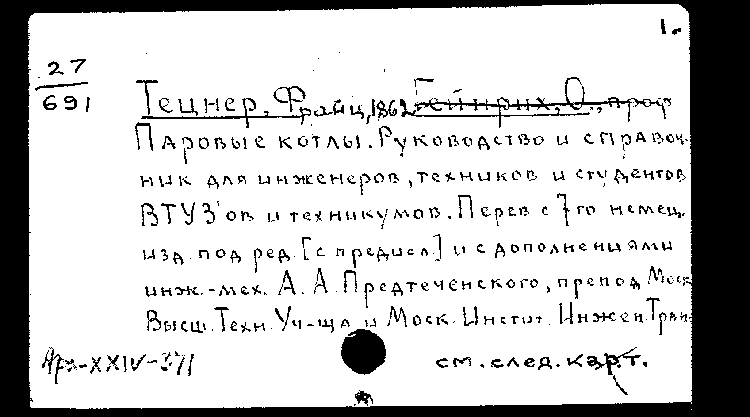 1.
27
691
Тецнер, Франц, 1862 Гейнрих, О., проф
Паровые котлы. Руководство и справоч-
ник для инженеров, техников и студентов
ВТУЗ'ов и техникумов. Перев с 7го немец.
изд. под ред. [с предисл] и с дополнениями
инж.-мех. А. А. Предтеченского, препод Моск
Высш. Техн. Уч-ща и Моск. Инстит. Инжен. Тран-
XXIV-371
см. след. карт.